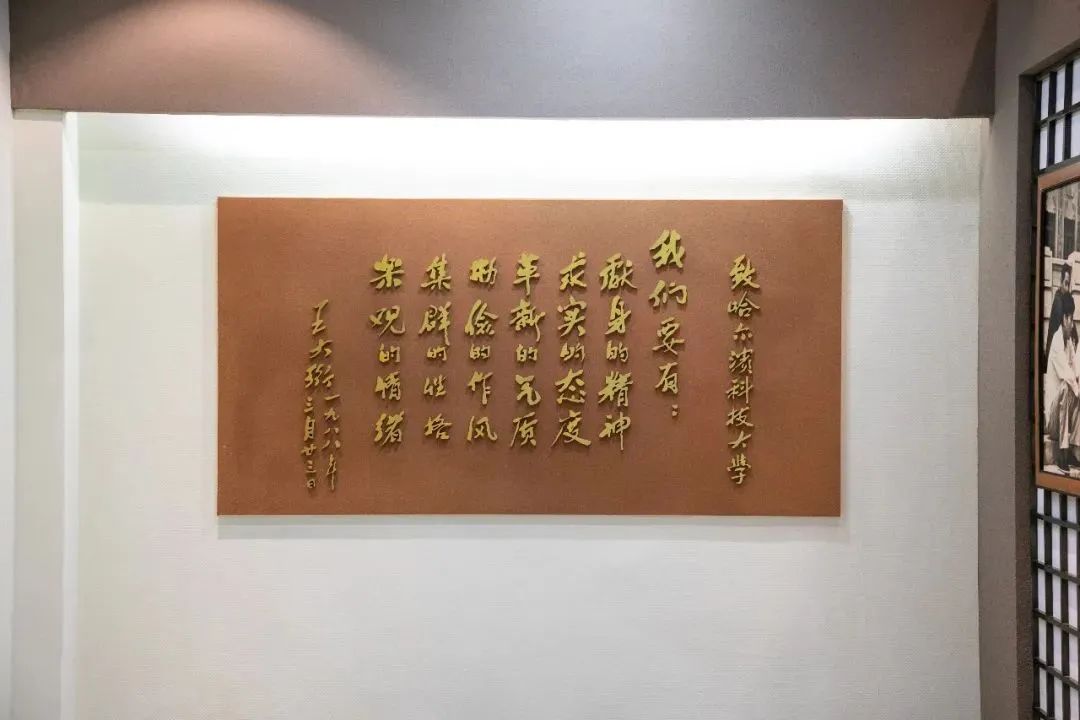 致哈尔滨科技大学
我们要有：
献身的精神
求实的态度
革新的气质
勤俭的作风
集群的性格
樂观的情绪
王大珩一九八八年
三月廿三日